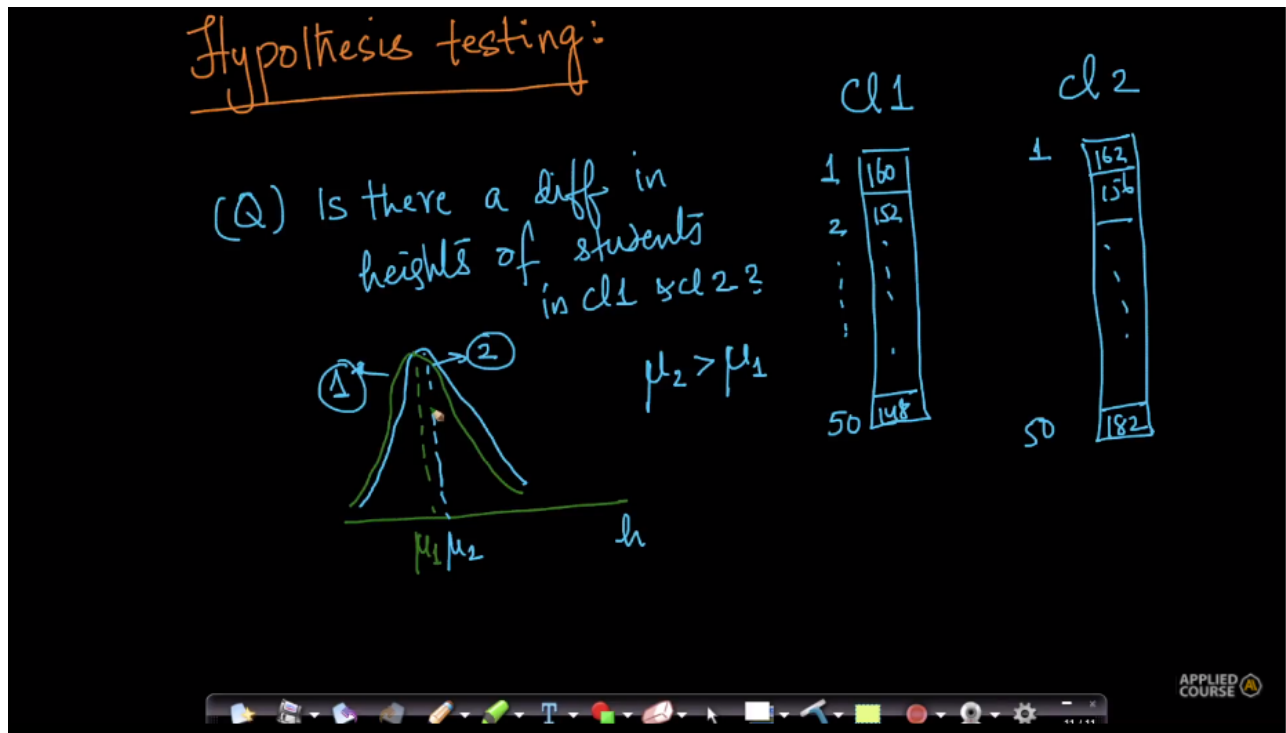 Hypothesis testing:
(Q) Is there a diff in
heights of students
in cl1 & cl2?
1
2
μ2 > μ1
μ1 μ2
h
Cl 1
1 160
2 152
50 148
cl 2
1 162
156
50 182
APPLIED
COURSE
T
11 / 11